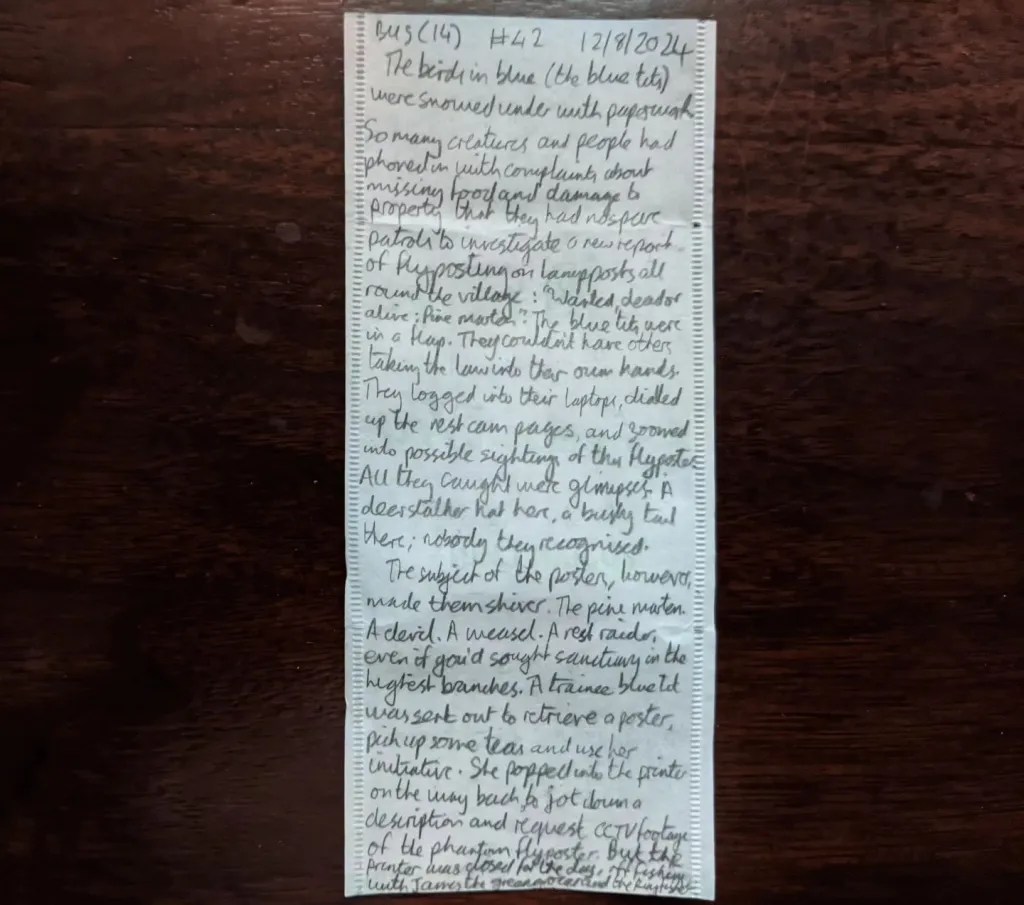 Bug (14) #42 12/8/2024
The birds in blue (the blue tits)
were snowed under with paperwork
So many creatures and people had
phoned in with complaints about
missing food and damage to
property that they had no spare
patrols to investigate a new report
of flyposting on lampposts all
round the village: "Wanted, dead or
alive: Pine marten". The blue tits were
in a flap. They couldn't have others
taking the law into their own hands.
They logged into their laptops, dialled
up the nest cam pages, and zoomed
into possible sightings of the flyposter
All they caught were glimpses. A
deerstalker hat here, a bushy tail
there; nobody they recognised.
The subject of the poster, however,
made them shiver. The pine marten.
A devil. A weasel. A nest raider,
even if you'd sought sanctuary in the
highest branches. A trainee blue tit
was sent out to retrieve a poster,
pick up some teas and use her
initiative. She popped into the printer
on the way back to jot down a
description and request CCTV footage
of the phantom flyposter. But the
printer was closed for the day, off fishing
with James the greengrocer and the kingfisher